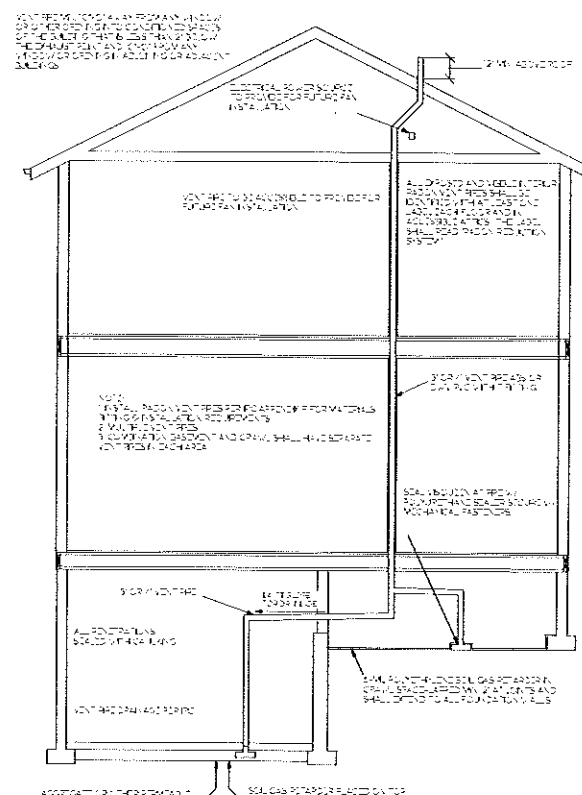 VENT PIPE MIN. 10' AWAY FROM ANY WINDOW
OR OTHER OPENING INTO CONDITIONED SPACES
OF THE BUILDING THAT IS LESS THAN 2' BELOW
THE EXHAUST POINT AND 10' FROM ANY
WINDOW OR OPENING IN ADJOINING OR ADJACENT
BUILDINGS
12" MIN. ABOVE ROOF
ELECTRICAL POWER SOURCE
TO PROVIDE FOR FUTURE FAN
INSTALLATION
VENT PIPE TO BE ACCESSIBLE TO PROVIDE FOR
FUTURE FAN INSTALLATION
ALL EXPOSED AND VISIBLE INTERIOR
RADON VENT PIPES SHALL BE
IDENTIFIED WITH AT LEAST ONE
LABEL EACH FLOOR AND IN
ACCESSIBLE ATTICS. THE LABEL
SHALL READ RADON REDUCTION
SYSTEM
3" OR 4" VENT PIPE ABS OR
PVC WITH FITTING
NOTE:
1 INSTALL RADON VENT PIPES PER IRC APPENDIX F FOR MATERIALS
FITTING & INSTALLATION REQUIREMENTS
2 MULTIPLE VENT PIPES
3 COMBINATION BASEMENT AND CRAWL SHALL HAVE SEPARATE
VENT PIPES IN EACH AREA
SEAL VISQUEEN AT PIPE W/
POLYURETHANE SEALER SECURE W/
MECHANICAL FASTENERS
3" OR 4" VENT PIPE
SLOPE
FOR DRAINAGE
ALL PENETRATIONS
SEALED WITH CAULKING
6-MIL POLYETHYLENE SOIL GAS RETARDER IN
CRAWL SPACE LAPPED MIN. 12" AT JOINTS AND
SHALL EXTEND TO ALL FOUNDATION WALLS
VENT PIPE DRAINAGE PER IRC
AGGREGATE OR OTHER PERMEABLE
SOIL GAS RETARDER PLACED ON TOP